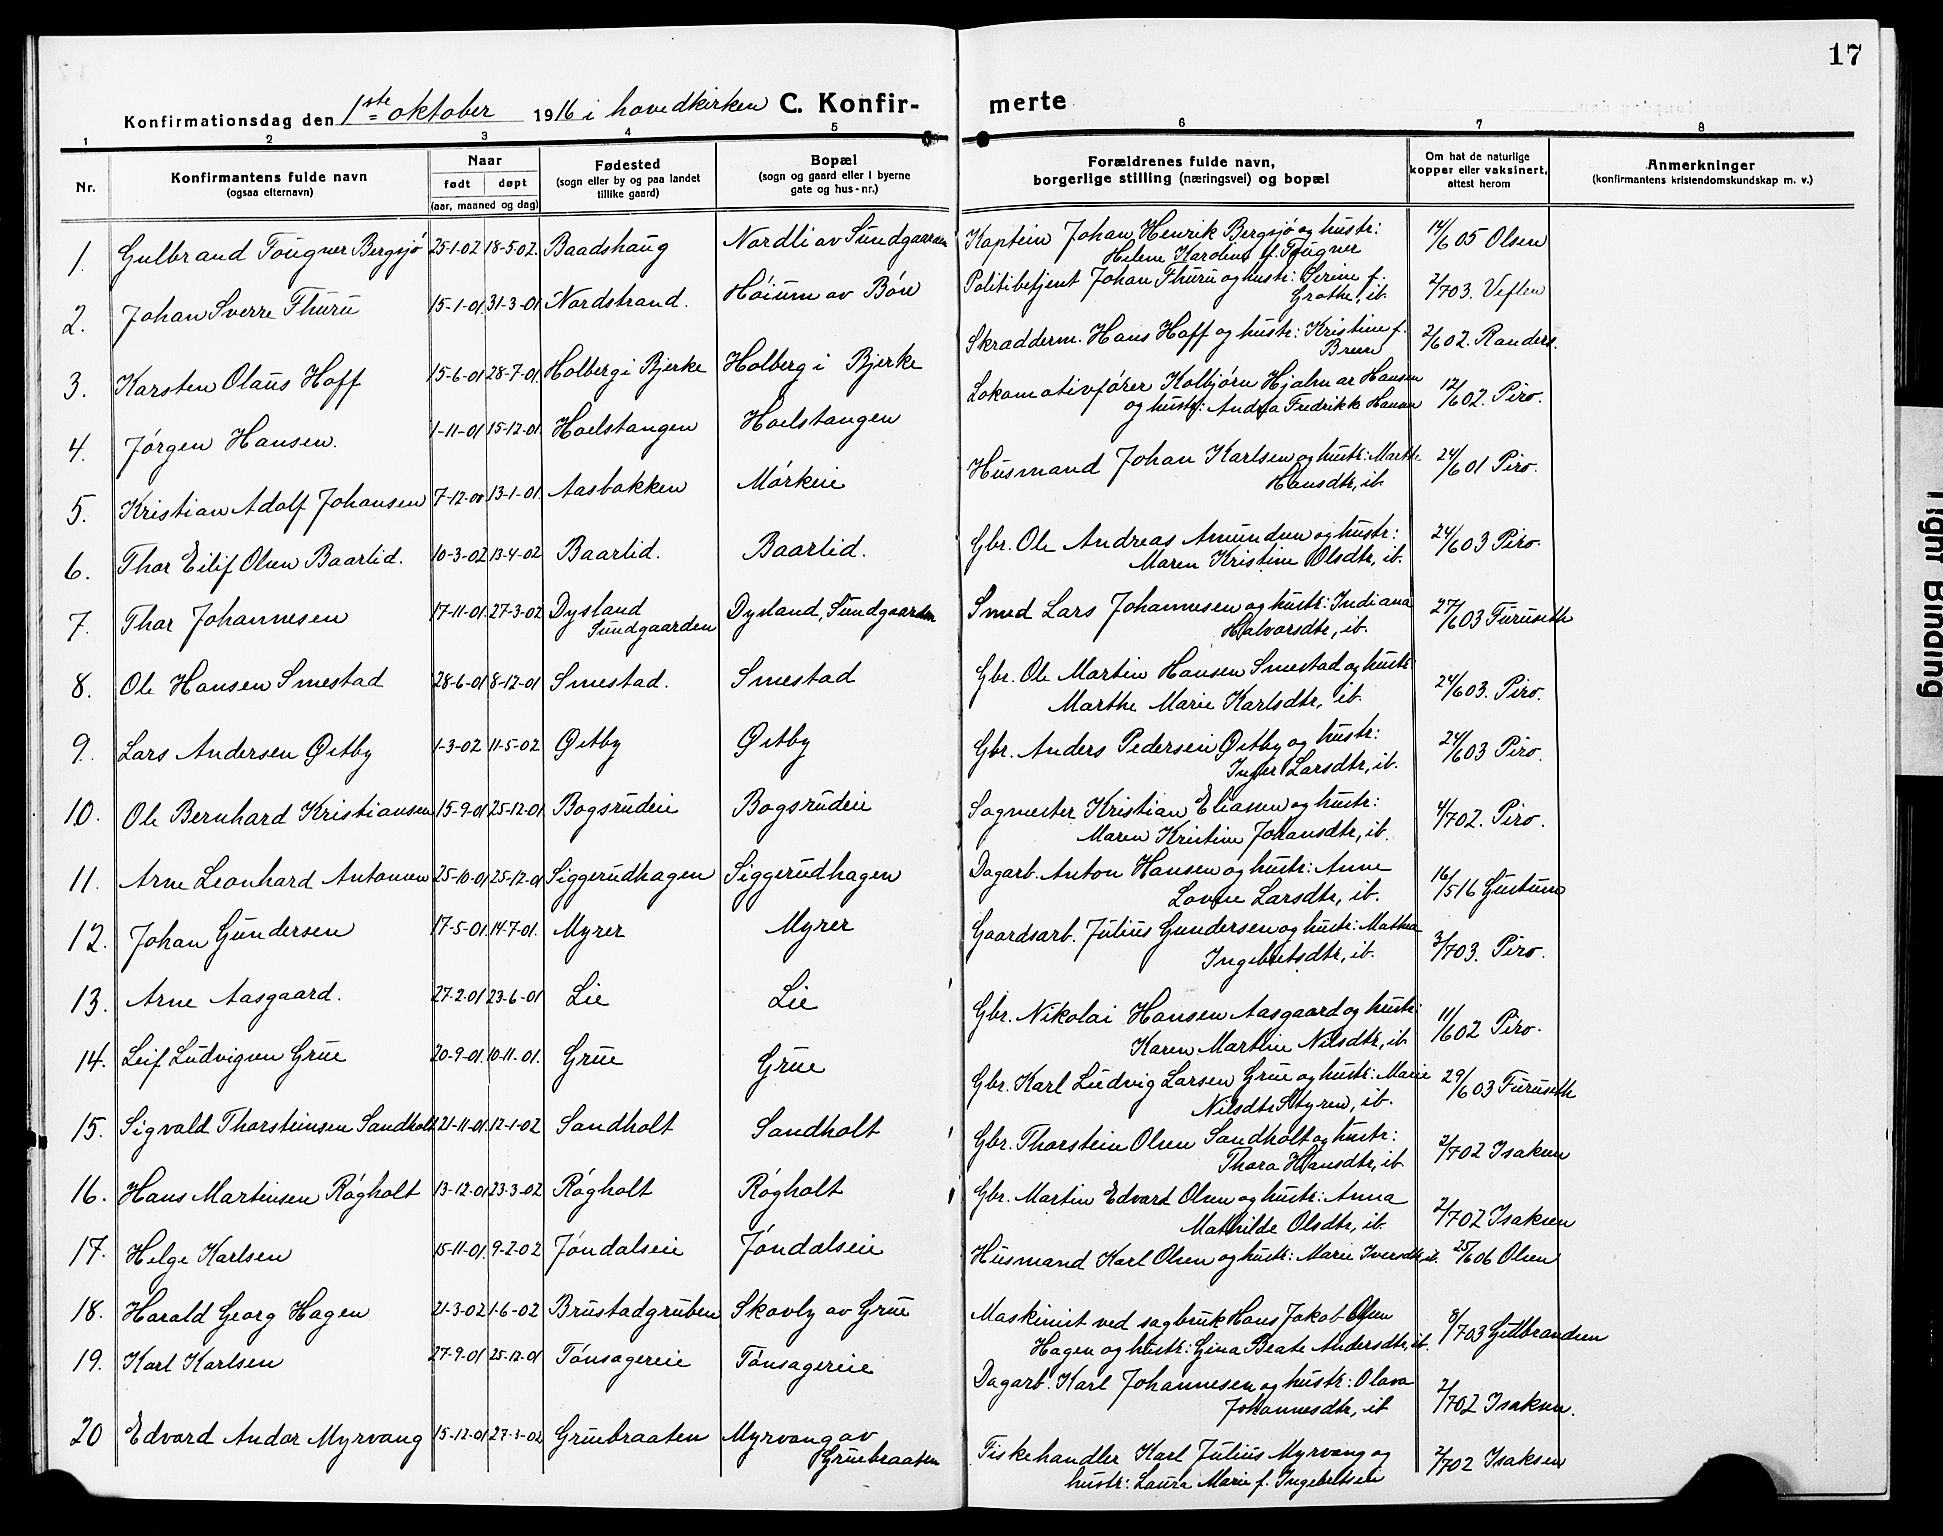 17
Konfirmationsdag den 1ste oktober 1916 i hovedkirken C. Konfir- merte
1 2 3 4 5 6 7 8
Nr.
Konfirmantens fulde navn
(ogsaa efternavn)
Naar
født døpt
(aar, maaned og dag)
Fødested
(sogn eller by og paa landet
tillike gaard)
Bopæl
(sogn og gaard eller i byerne
gate og hus-nr.)
Forældrenes fulde navn,
borgerlige stilling (næringsvei) og bopæl
Om hat de naturlige
kopper eller vaksinert,
attest herom
Anmerkninger
(konfirmantens kristendomskundskap m. v.)
1. Gulbrand Tougner Bergsjö 25-1-02 18-5-02. Baadshaug Nordli av Sundgaarden Kaptein Johan Henrik Bergsjö og hustr: 14/6 05 Olsen
Helene Karoline f. Tougner
2. Johan Sverre Thuru 15-1-01 31-3-01 Nordstrand. Höium av Bön Politibetjent Johan Thuru og hustr: Serine f. 2/7 03. Veflen
Grothe, ib.
3. Karsten Olaus Hoff 15-6-01 28-7-01. Holberg i Bjerke Holberg i Bjerke Skradderm. Hans Hoff og hustr: Kristine f. 2/6 02. Randers.
Breen
4. Jörgen Hansen. 1-11-01 15-12-01. Hoelstangen Hoelstangen Lokomotivförer Kolbjörn Hjalmar Hansen 12/6 02. Piro.
og hustr: Andrea Fredrikke Hansen
5. Kristian Adolf Johansen 7-12-00 13-1-01. Aasbakken Mörkeie Husmand Johan Karlsen og hustr: Marthe 24/6 01 Piro.
Hansdtr, ib.
6. Thor Eilif Olsen Baarlid. 10-3-02 13-4-02 Baarlid. Baarlid. Gbr. Ole Andreas Amundsen og hustr: 24/6 03 Piro.
Maren Kristine Olsdtr, ib.
7. Thor Johannesen 17-11-01. 27-3-02 Dysland Dysland, Sundgaarden Smed Lars Johannesen og hustr: Indiana 27/6 03 Furuseth
Sundgaarden Halvorsdtr, ib.
8. Ole Hansen Smestad 28-6-01 8-12-01 Smestad. Smestad Gbr. Ole Martin Hansen Smestad og hustr: 24/6 03. Piro.
Marthe Marie Karlsdtr, ib.
9. Lars Andersen Østby 1-3-02 11-5-02 Østby Østby Gbr. Anders Pedersen Østby og hustr: 24/6 03 Piro.
Inger Larsdtr, ib.
10. Ole Bernhard Kristiansen 15-9-01 25-12-01 Bogsrudeie Bogsrudeie Sagmester Kristian Eliasen og hustr: 4/7 02. Piro.
Maren Kristine Johansdtr, ib.
11. Arne Leonhard Antonsen 25-10-01 25-12-01 Siggerudhagen Siggerudhagen Dagarb. Anton Hansen og hustr: Anne 16/5 16 Gustum
Lovise Larsdtr, ib.
12. Johan Gundersen 17-5-01. 14-7-01. Myrer Myrer Gaardsarb. Julius Gundersen og hustr: Mathea 3/7 03. Piro.
Ingebretsdtr, ib.
13. Arne Aasgaard. 27-2-01 23-6-01 Lie Lie Gbr. Nikolai Hansen Aasgaard og hustr: 11/6 02 Piro.
Karen Martine Nilsdtr, ib.
14. Leif Ludvigsen Grue 20-9-01. 10-11-01. Grue Grue Gbr. Karl Ludvig Larsen Grue og hustr: Marie 29/6 03 Furuseth
Nilsdtr Styren, ib.
15. Sigvald Thorsteinsen Sandholt 21-11-01. 12-1-02 Sandholt Sandholt Gbr. Thorstein Olsen Sandholt og hustr: 2/7 02 Isaksen
Thora Hansdtr, ib.
16. Hans Martinsen Rögholt 13-12-01 23-3-02 Rögholt Rögholt Gbr. Martin Edvard Olsen og hustr: Anna 2/7 02 Isaksen
Mathilde Olsdtr, ib.
17. Helge Karlsen 15-11-01. 9-2-02 Jöndalseie Jöndalseie Husmand Karl Olsen og hustr: Marie Iversdtr, ib. 25/6 06 Olsen
18. Harald Georg Hagen 21-3-02 1-6-02 Brustadgruben Skovly av Grue Maskinist ved sagbruk Hans Jakob Olsen 8/7 03 Gulbrandsen
Hagen og hustr: Gina Beate Andersdtr, ib.
19. Karl Karlsen 27-9-01 25-12-01 Tönsagereie Tönsagereie Dagarb. Karl Johannesen og hustr: Olava 2/7 02 Isaksen.
Johannesdtr, ib
20 Edvard Andor Myrvang 15-12-01 27-3-02 Gruebraaten Myrvang av Fiskehandler Karl Julius Myrvang og 2/7 02 Isaksen
Gruebraaten hustr: Laura Marie f. Ingebretsen
Tight Binding